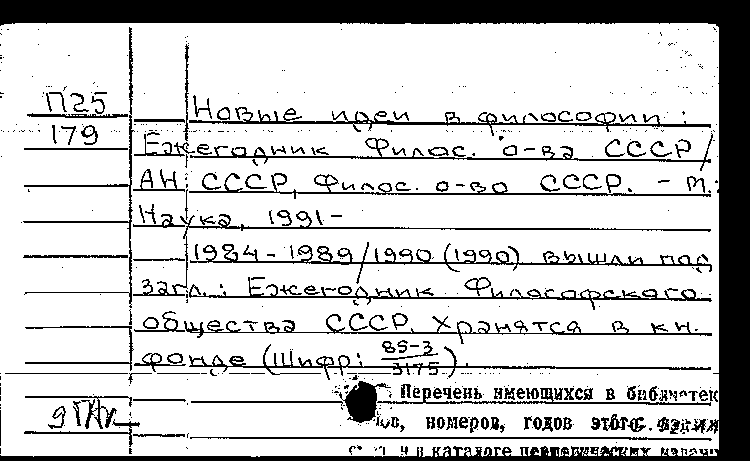 П25
179
Новые идеи в философии :
Ежегодник Филос. о-ва СССР /
АН СССР, Филос. о-во СССР. – М.:
Наука, 1991–
1984–1989/1990 (1990) вышли под
загл.: Ежегодник Философского
общества СССР. Хранятся в кн.
фонде (Шифр: 85-3/3175).
Перечень имеющихся в библиотек
ов, номеров, годов этого
в каталоге периодических